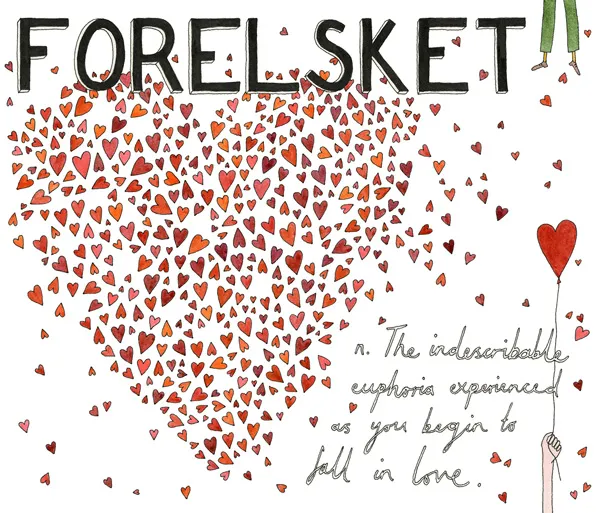 FORELSKET
n. The indescribable
euphoria experienced
as you begin to
fall in love.